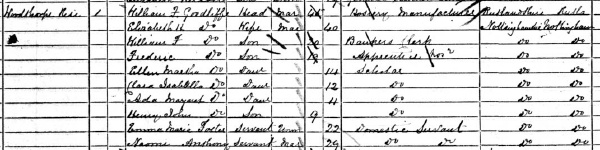 Woodthorpe Rise 1 William F Goodliffe Head Mar Hosiery Manufacturer Rutlandshire
Elizabeth H Do Wife Mar 40 Nottinghamshire Nottingham
William F Do Son Bankers Clerk Do Do
Frederic Do Son Apprentice Do Do
Ellen Martha Do Daur 14 Scholar Do Do
Clara Isabella Do Daur 12 Do Do Do
Ada Margaret Do Daur 4 Do Do Do
Henry John Do Son 9 Do Do Do
Emma Marie Foster Servant Unm 22 Domestic Servant Do Do
Naomi Anthony Servant Mar 29 Do Do Do Do